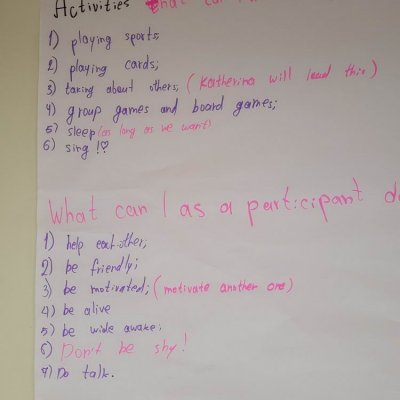 Activities What can
1) playing sports;
2) playing cards;
3) taking about others; (Katherina will lead this)
4) group games and board games;
5) sleep (as long as we want)
6) sing !?
What can I as a participant do
1) help each-other;
2) be friendly;
3) be motivated; (motivate another one)
4) be alive
5) be wide awake;
6) Don't be shy!
7) Do talk.